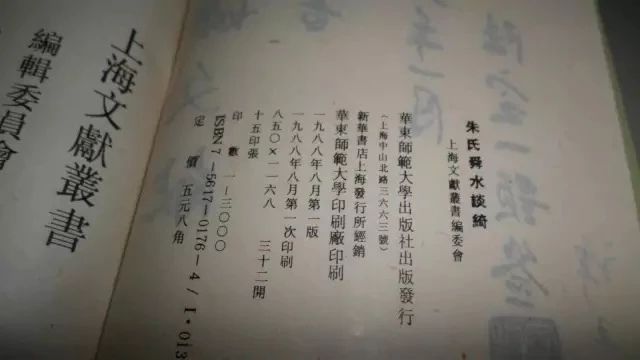 朱氏舜水談綺
上海文獻叢書編委會
華東師範大學出版社出版發行
(上海中山北路三六六三號)
新華書店上海發行所經銷
華東師範大學印刷廠印刷
一九八八年八月第一版
一九八八年八月第一次印刷
八五〇×一一六八 三十二開
十五印張
印數 一—三〇〇〇
ISBN7—5617—0176—4/I·013
定價 五元八角
上海文獻叢書
編輯委員會